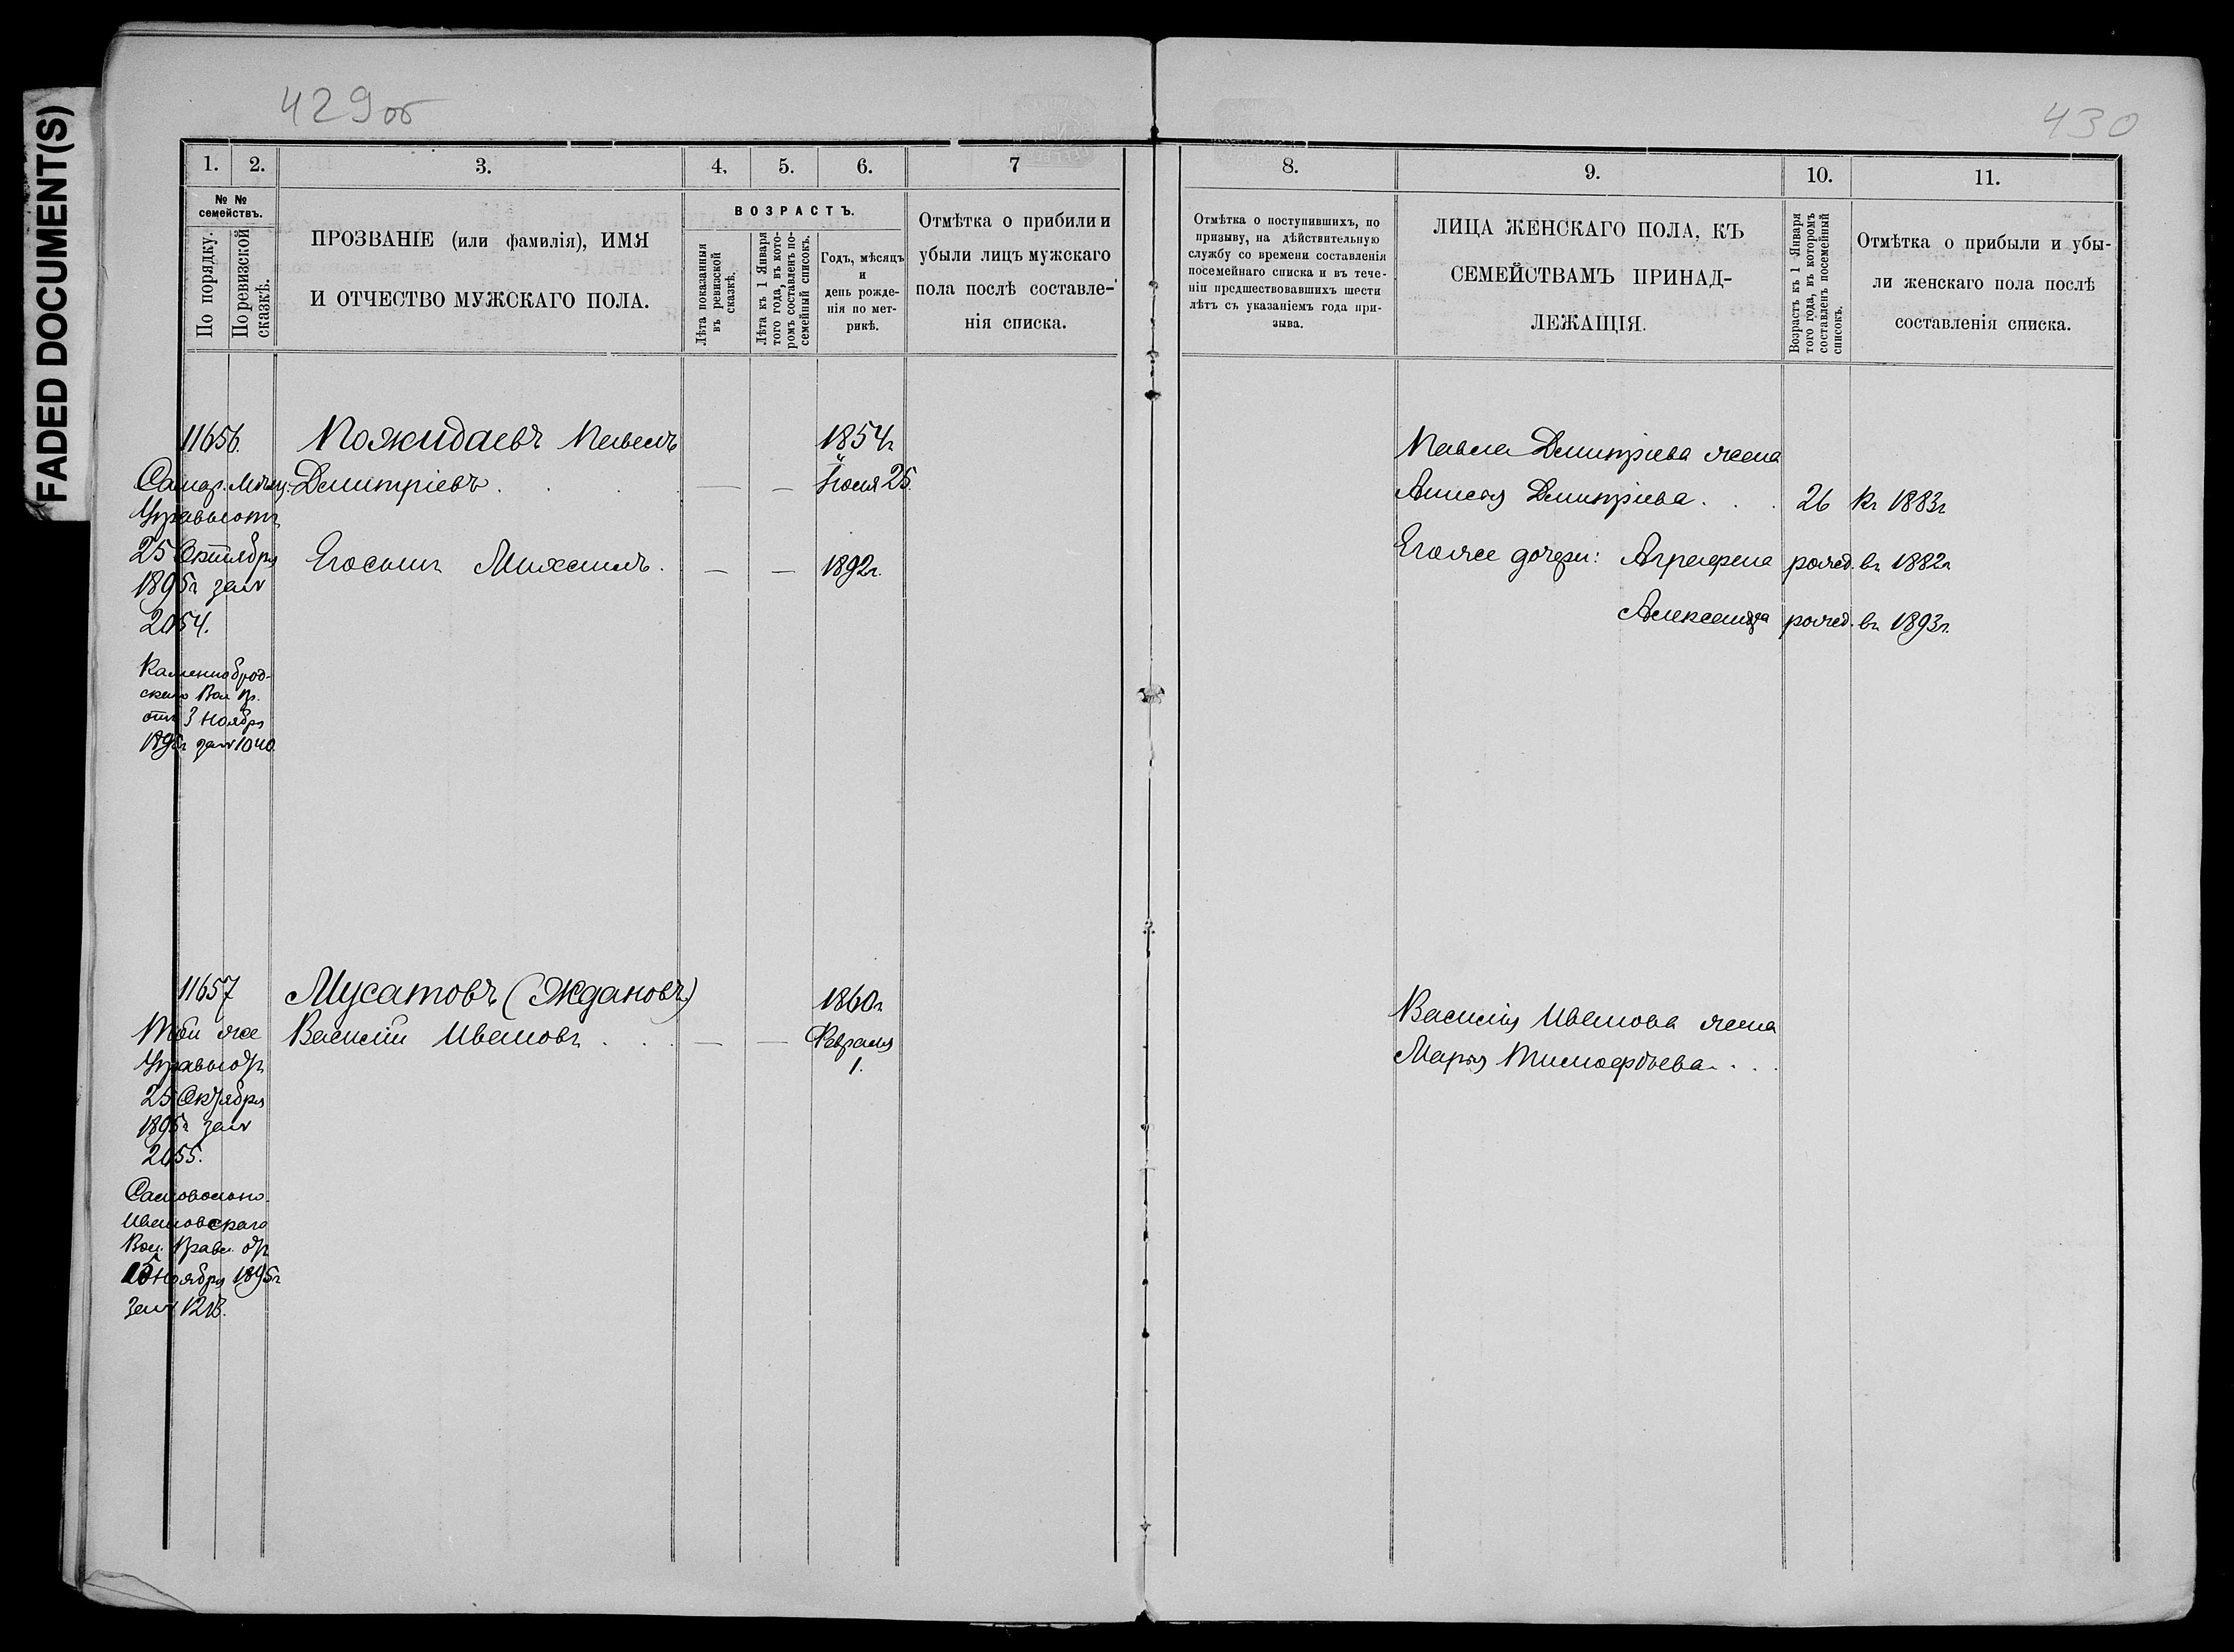 FADED DOCUMENT(S)
429об
430
1. 2. 3. 4. 5. 6. 7
№ № семействъ.
По порядку.
По ревизской сказкѣ.
ПРОЗВАНІЕ (или фамилія), ИМЯ
И ОТЧЕСТВО МУЖСКАГО ПОЛА.
ВОЗРАСТЪ.
Лѣта показанныя
въ ревизской
сказкѣ.
Лѣта къ 1 Января
того года, въ кото-
ромъ составленъ по-
семейный списокъ.
Годъ, мѣсяцъ
и
день рожде-
нія по мет-
рикѣ.
Отмѣтка о прибили и
убыли лицъ мужскаго
пола послѣ составле-
нія списка.
11656. Пожидаевъ Павелъ 1854г
Самар. Мѣщ. Дмитріевъ . . . — — Іюля 25.
Управы отъ
25 Октября Егосынъ Михаилъ. — — 1892г.
1895г за №
2054.
Каменноброд-
скаго Вол Пр.
отъ 3 Ноября
1895г за № 1040
11657 Мусатовъ (Ждановъ) 1860г
Той же Василій Ивановъ . . . — — Февраля
Управы отъ 1.
25 Октября
1895г за №
2055.
Самовольно-
Ивановскаго
Вол. Правл. отъ
Ноября 1895г
за №
8. 9. 10. 11.
Отмѣтка о поступившихъ, по
призыву, на дѣйствительную
службу со времени составленія
посемейнаго списка и въ тече-
ніи предшествовавшихъ шести
лѣтъ съ указаніемъ года при-
зыва.
ЛИЦА ЖЕНСКАГО ПОЛА, КЪ
СЕМЕЙСТВАМЪ ПРИНАД-
ЛЕЖАЩІЯ.
Возрастъ къ 1 Января
того года, въ которомъ
составленъ посемейный
списокъ.
Отмѣтка о прибыли и убы-
ли женскаго пола послѣ
составленія списка.
Павла Дмитріева жена
Анисья Дмитріева . . . 26 къ 1883г
Егоже дочери: Агрефена рожд. въ 1882г
Александра рожд. въ 1893г.
Василія Иванова жена
Марья Тимофѣева . . .